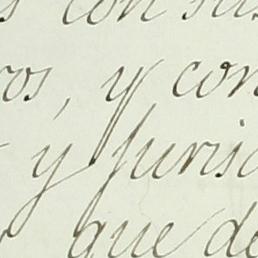 con su
ros, y con
y Juris
que de